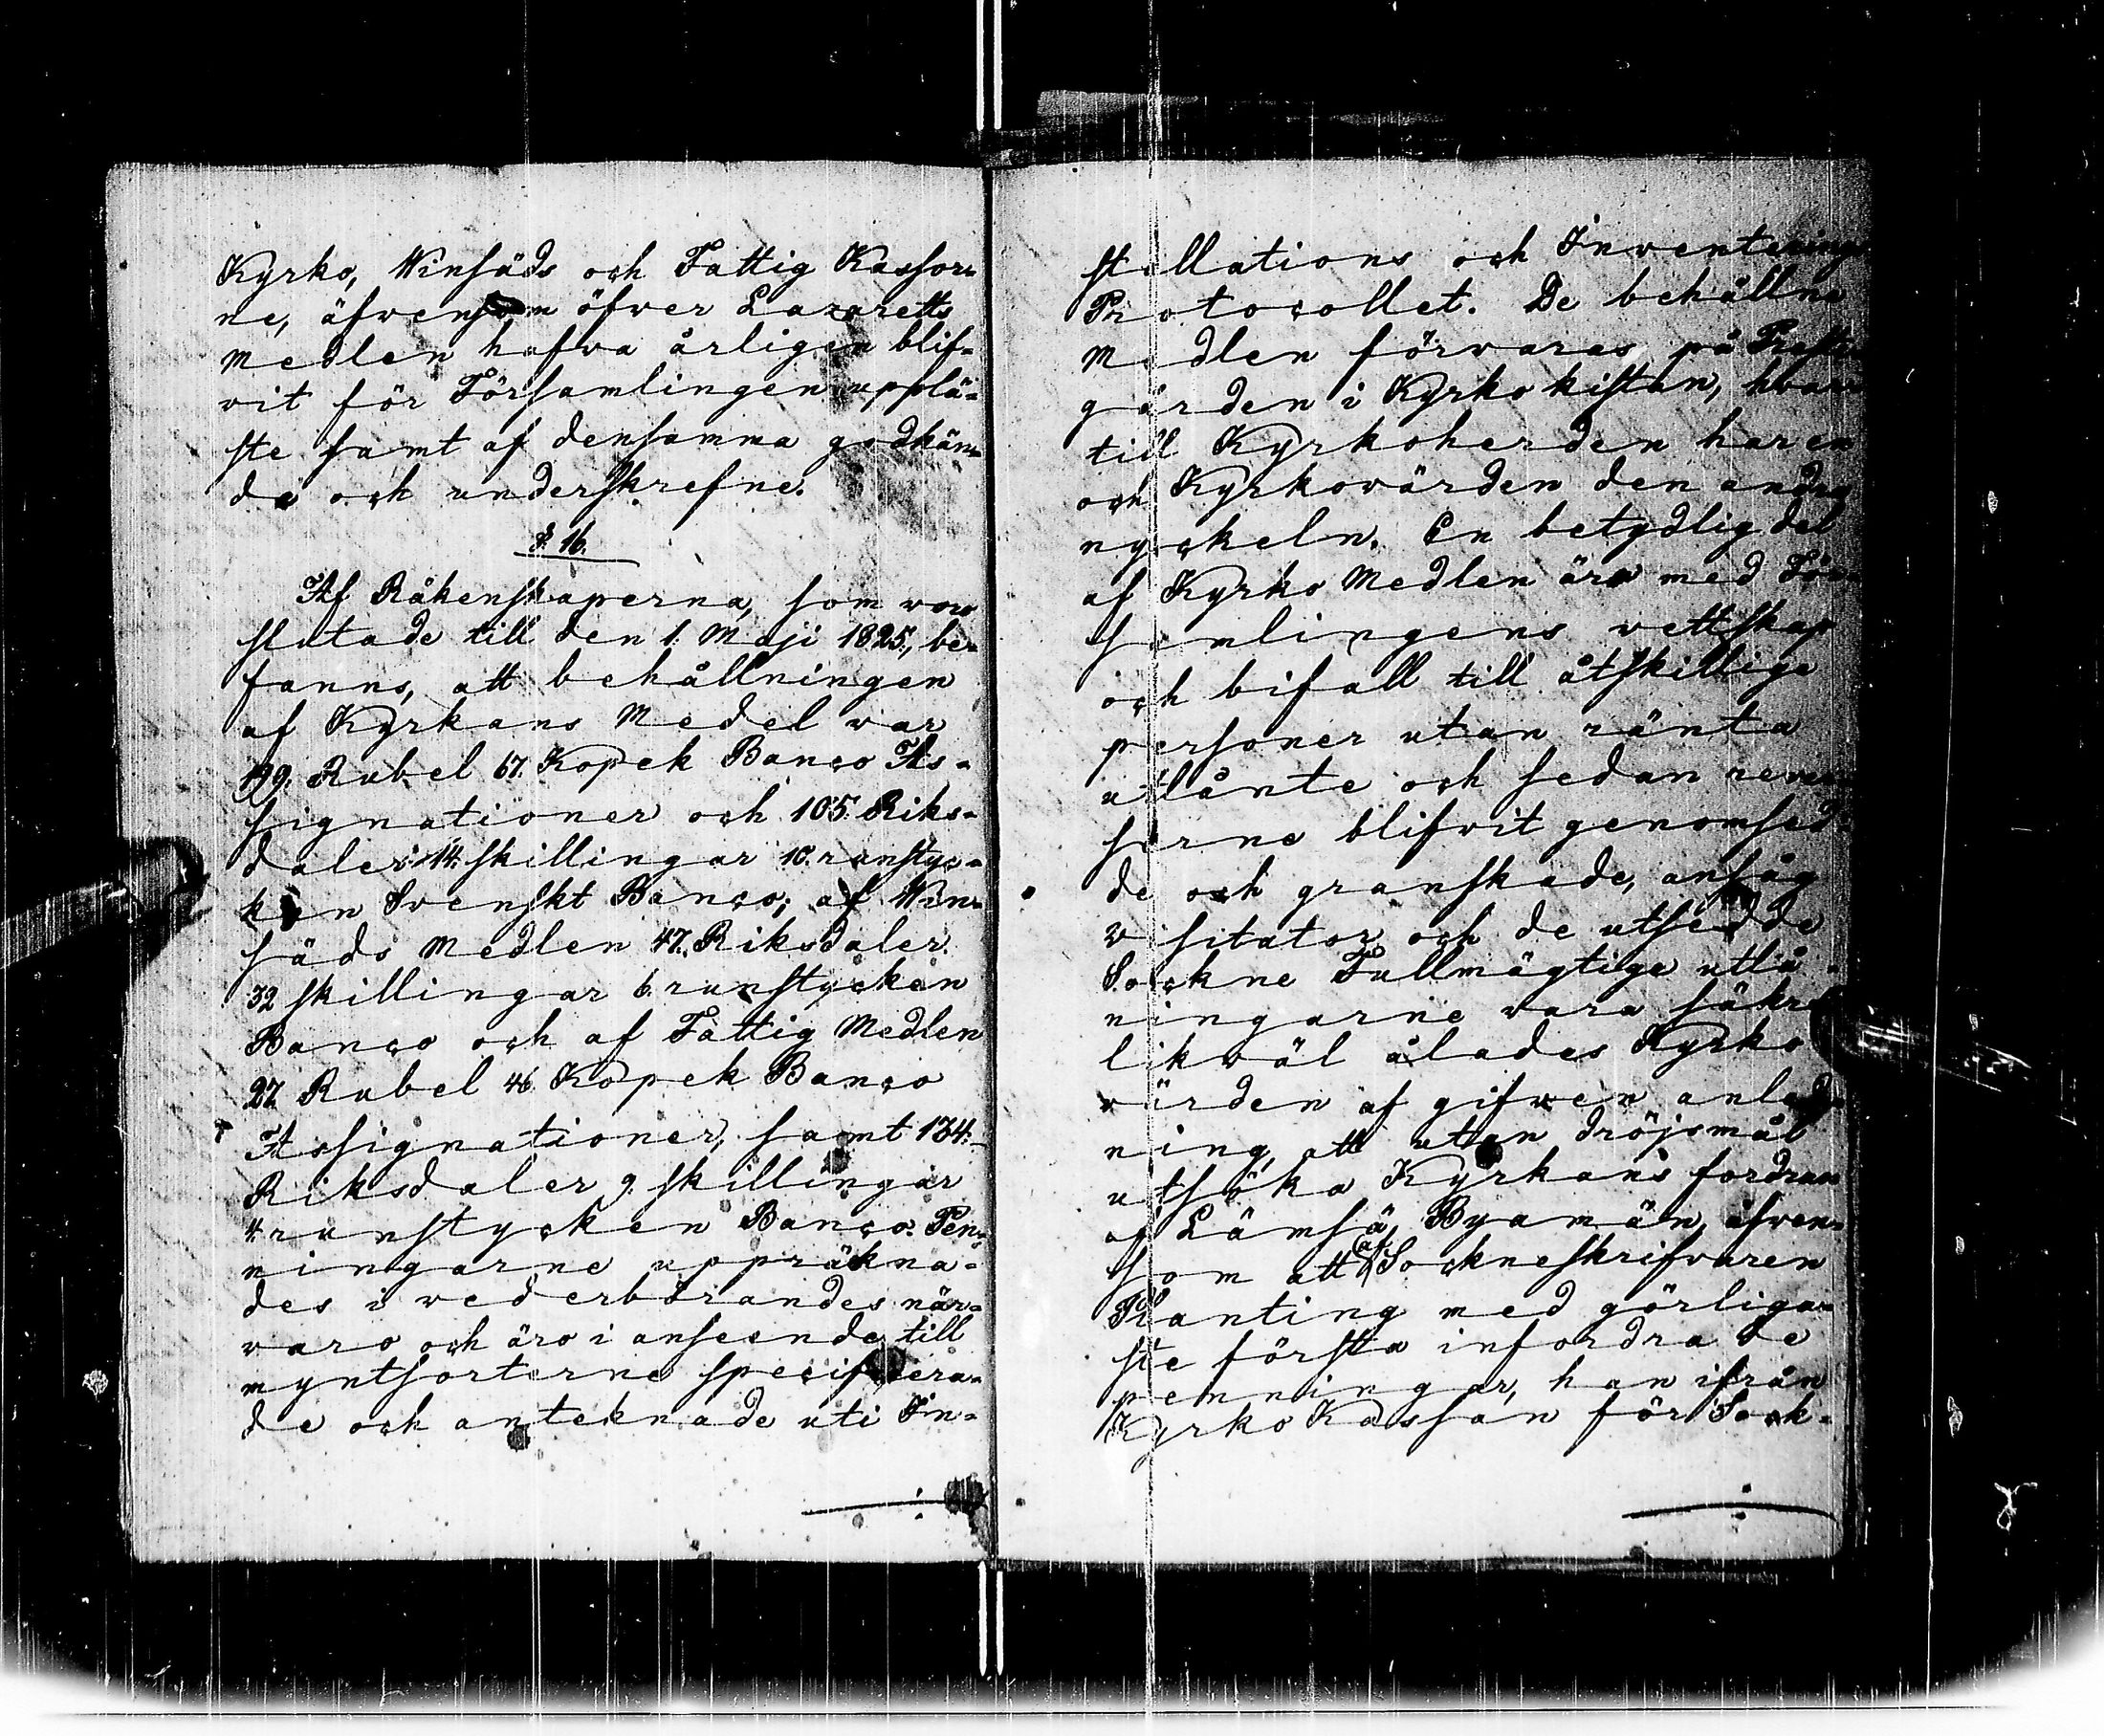 Kyrko, Winsäds och Fattig Kassor-
ne, äfvensom öfver Lazaretts
Medlen hafva årligen blif-
vit för Församlingen upplä-
ste samt af densamma godkän-
de och underskrefne.
§ 16.
Af Räkenskaperna, som voro
slutade till den 1. Maji 1825, be-
fanns, att behållningen
af Kyrkans Medel var
199. Rubel 67. Kopek Banco As-
signationer och 105. Riks-
daler 14. skillingar 10. runstyc-
ken Svenskt Banco; af Win-
säds Medlen 47. Riksdaler
32 skillingar 6. runstycken
Banco och af Fattig Medlen
27. Rubel 46. Kopek Banco
Assignationer, samt 134.
Riksdaler 9. skillingar
4. runstycken Banco. Pen-
ningarne uppräkna-
des i vederbörandes när-
varo och äro i anseende till
myntsorterne specificera-
de och anteknade uti In-
stallations och Inventerings
Protocollet. De behållne
Medlen förvaras på Prest-
gården i Kyrko kistan, hvar-
till Kyrkoherden har en
och Kyrkovärden den andra
nyckeln. En betydlig del
af Kyrko Medlen äro med För-
samlingens vettskap
och bifall till åtskillige
personer utan ränta
utlånte och sedan rever-
serne blifvit genomsed-
de och granskade, ansåg
visitator och de utsedde
Sockne Fullmägtige utlå-
ningarne vara säkre
likväl ålades Kyrko
värden af gifven anled-
ning, att utan dröjsmål
utsöka Kyrkans fordran
af Lämsä Byamän, äfven-
som att af Sockneskrifvaren
Planting med görligas-
te första infordra de
penningar, han ifrån
Kyrko Kassan för Sock-